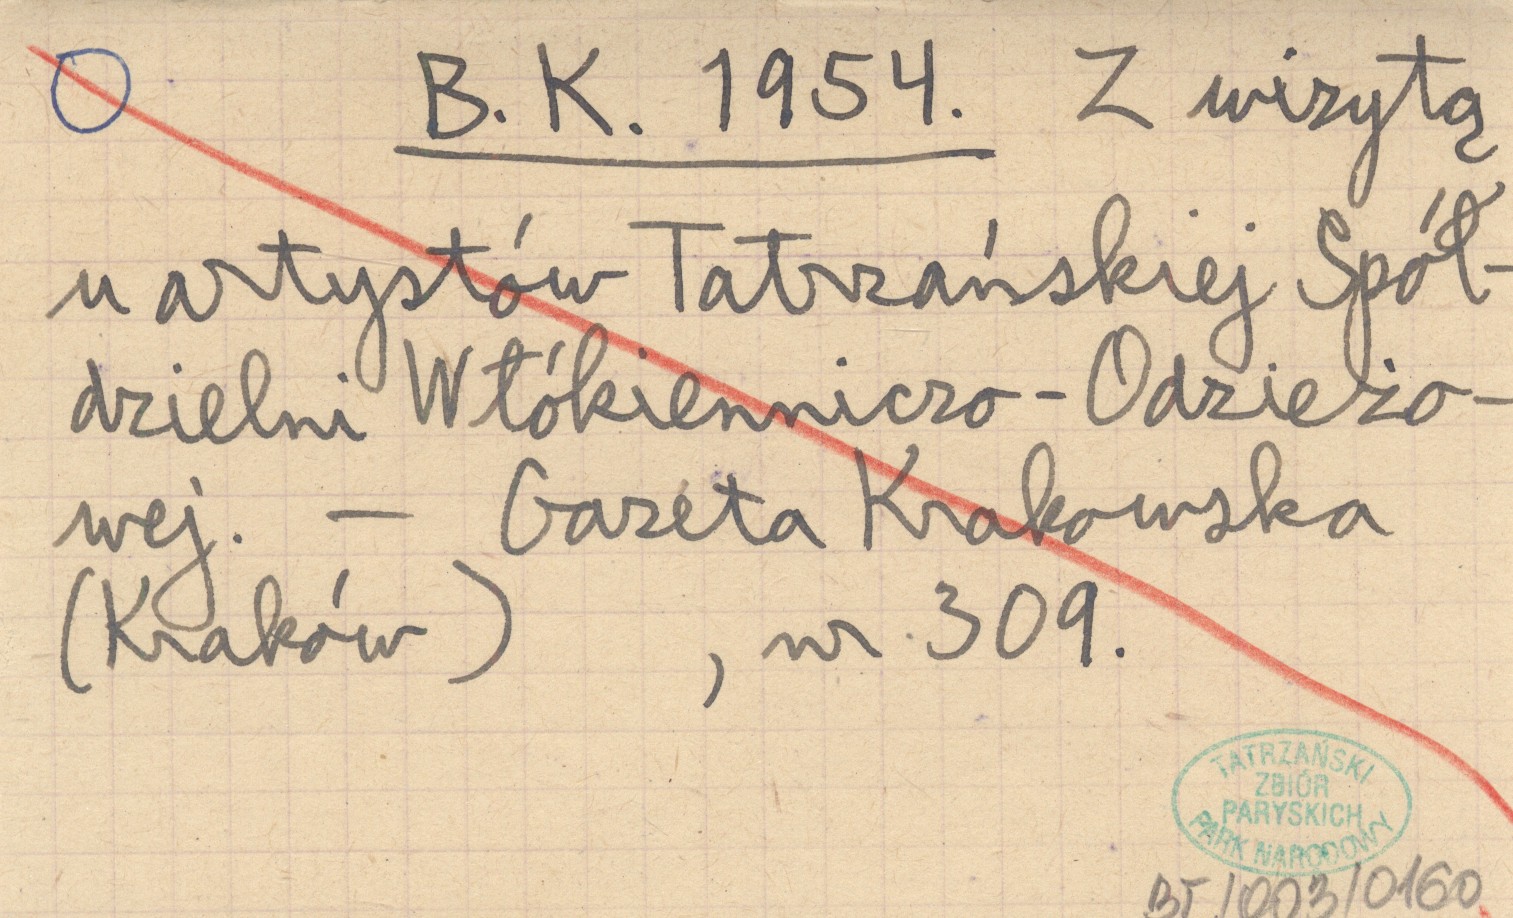 B. K. 1954. Z wizytą
u artystów Tatrzańskiej Spół-
dzielni Włókienniczo-Odzieżo-
wej. – Gazeta Krakowska
(Kraków) , nr 309.
TATRZAŃSKI
ZBIÓR
PARYSKICH
PARK NARODOWY
BT/003/0160